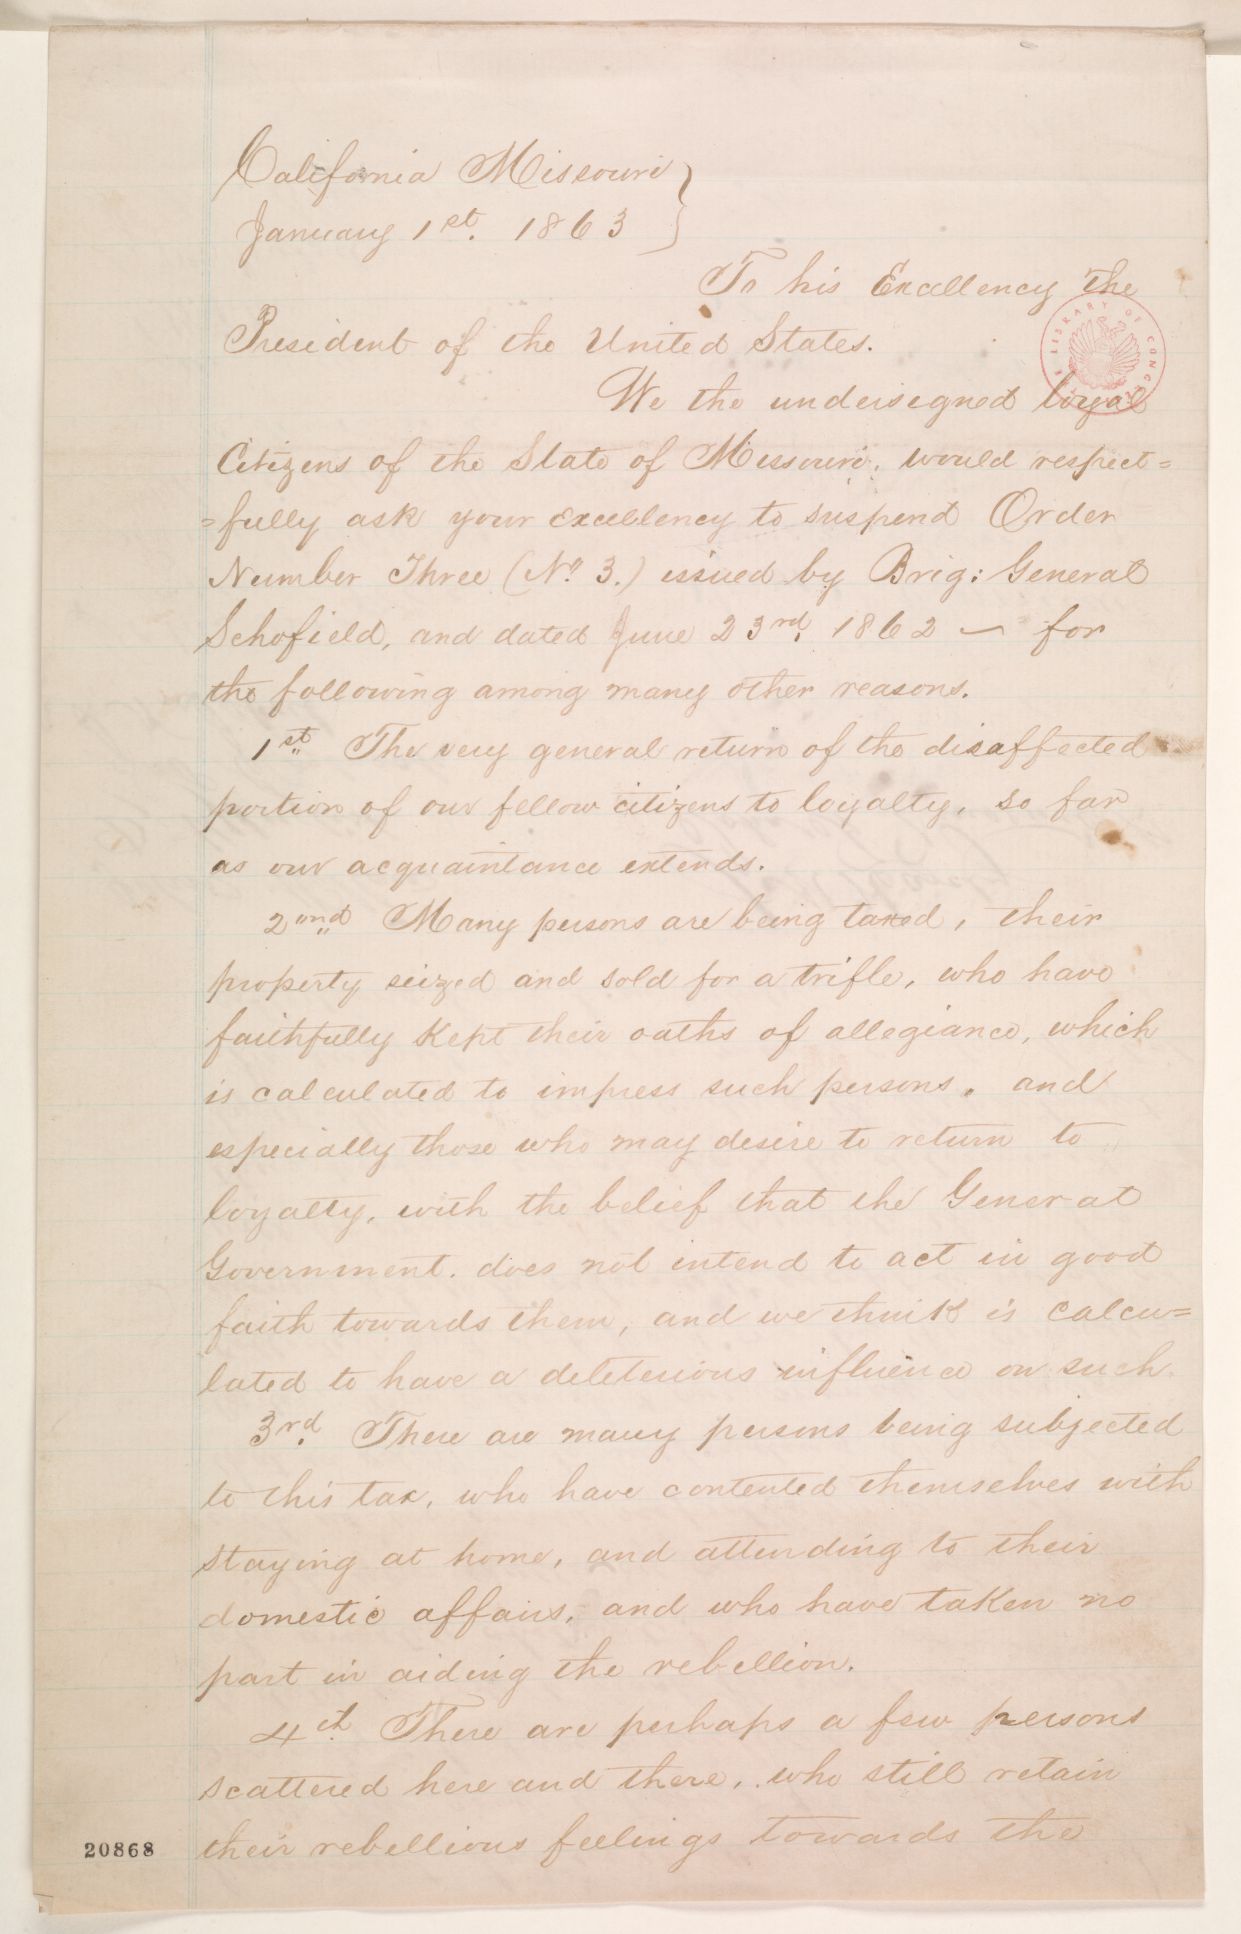 California Missouri }
January 1st. 1863 }
To his Excellency the
President of the United States.
THE LIBRARY OF CONGRESS
We the undersigned loyal
Citizens of the State of Missouri, would respect=
=fully ask your Excellency to suspend Order
Number Three (No. 3.) issued by Brig: General
Schofield, and dated June 23rd. 1862 — for
the following among many other reasons.
1st. The very general return of the disaffected
portion of our fellow citizens to loyalty, so far
as our acquaintance extends.
2ond. Many persons are being taxed, their
property seized and sold for a trifle, who have
faithfully kept their oaths of allegiance, which
is calculated to impress such persons, and
especially those who may desire to return to
loyalty, with the belief that the General
Government. does not intend to act in good
faith towards them, and we think is calcu=
lated to have a deleterious influence on such.
3rd. There are many persons being subjected
to this tax, who have contented themselves with
staying at home, and attending to their
domestic affairs, and who have taken no
part in aiding the rebellion.
4th. There are perhaps a few persons
scattered here and there, who still retain
their rebellious feelings towards the
20868